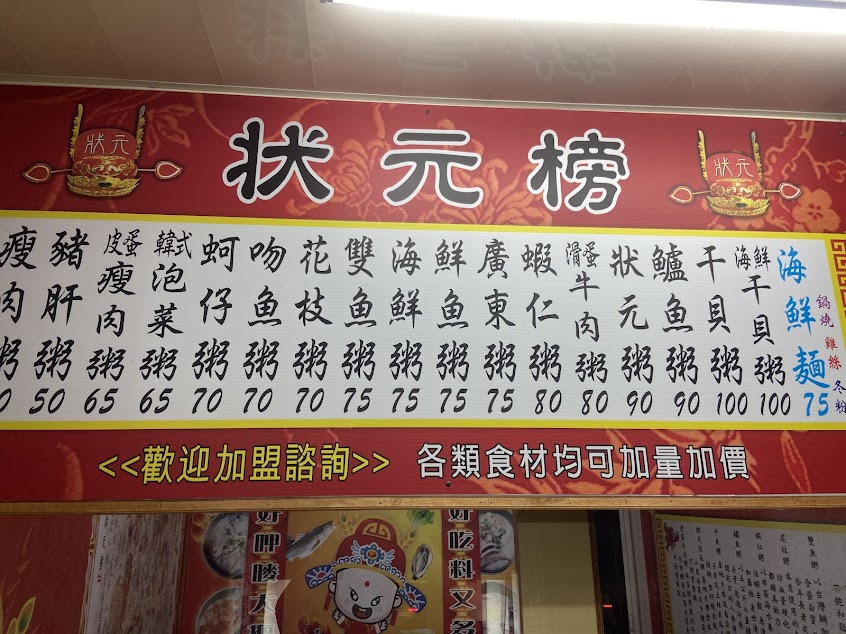 狀元
狀元榜
狀元
瘦肉粥
豬肝粥 50
皮蛋瘦肉粥 65
韓式泡菜粥 65
蚵仔粥 70
吻魚粥 70
花枝粥 70
雙魚粥 75
海鮮粥 75
鮮魚粥 75
廣東粥 75
蝦仁粥 80
滑蛋牛肉粥 80
狀元粥 90
鱸魚粥 90
干貝粥 100
海鮮干貝粥 100
海鮮麵 75
鍋燒 雞絲 冬粉
<<歡迎加盟諮詢>> 各類食材均可加量加價
好呷
好吃料又多